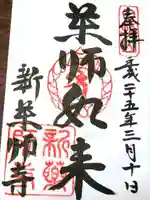 奉拝
平成二十五年三月十日
薬師如来
新薬師寺